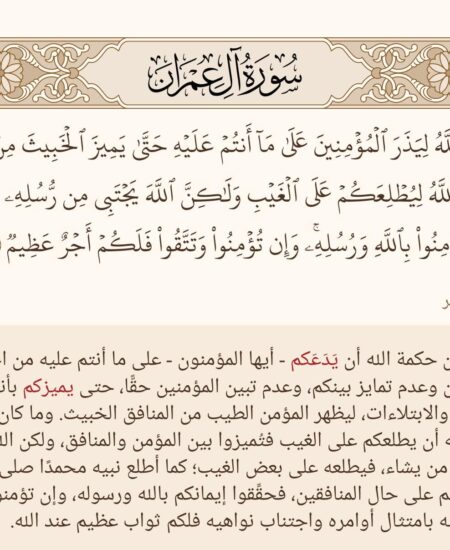 سُورَةُ آلِ عِمۡرَان
لِيَذَرَ ٱلۡمُؤۡمِنِينَ عَلَىٰ مَآ أَنتُمۡ عَلَيۡهِ حَتَّىٰ يَمِيزَ ٱلۡخَبِيثَ
لِيُطۡلِعَكُمۡ عَلَى ٱلۡغَيۡبِ وَلَٰكِنَّ ٱللَّهَ يَجۡتَبِي مِن رُّسُلِهِۦ
بِٱللَّهِ وَرُسُلِهِۦۚ وَإِن تُؤۡمِنُواْ وَتَتَّقُواْ فَلَكُمۡ أَجۡرٌ عَظِيمٞ
حكمة الله أن يَدَعَكم - أيها المؤمنون - على ما أنتم عليه من
وعدم تمايز بينكم، وعدم تبين المؤمنين حقًّا، حتى يميزكم
والابتلاءات، ليظهر المؤمن الطيب من المنافق الخبيث. وما كان
أن يطلعكم على الغيب فتُميزوا بين المؤمن والمنافق، ولكن
من يشاء، فيطلعه على بعض الغيب؛ كما أطلع نبيه محمدًا صلى
على حال المنافقين، فحقِّقوا إيمانكم بالله ورسوله، وإن
بامتثال أوامره واجتناب نواهيه فلكم ثواب عظيم عند الله.